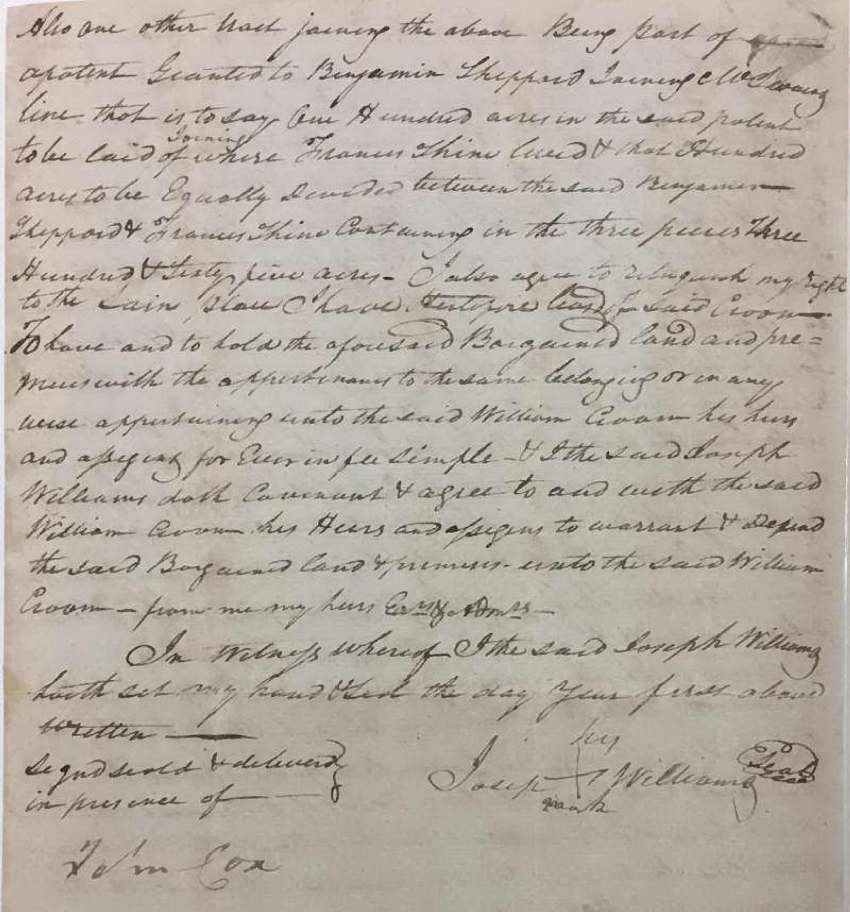 Also one other tract joining the above Being part of
apatent Granted to Benjamin Sheppard Joining
line that is to say One Hundred acres in the said patent
Joining
to be laid of where Frances Shine lived & that Hundred
acres to be Equally Devided between the said Benjamin
Sheppard & Frances Shine Containing in the three peices Three
Hundred & Sixty five acres - I also agree to relinquish my right
to the I have said Croom
To have and to hold the aforesaid Bargained land and pre=
mises with the appertinances to the same belonging or in any
wise appertaining unto the said William Croom his heirs
and assigns for Ever in fee simple - & I the said Joseph
Williams doth Covenant & agree to and with the said
William Croom his Heirs and assigns to warrant & Defend
the said Bargained land & premises unto the said William
Croom - from me my heirs Exrs & Admrs -
In Witness whereof I the said Joseph Williams
hath set my hand & Seal the day Year first above
Written
Signd seald & deliverd
in presence of
his
Joseph + Williams Seal
mark
John Cox